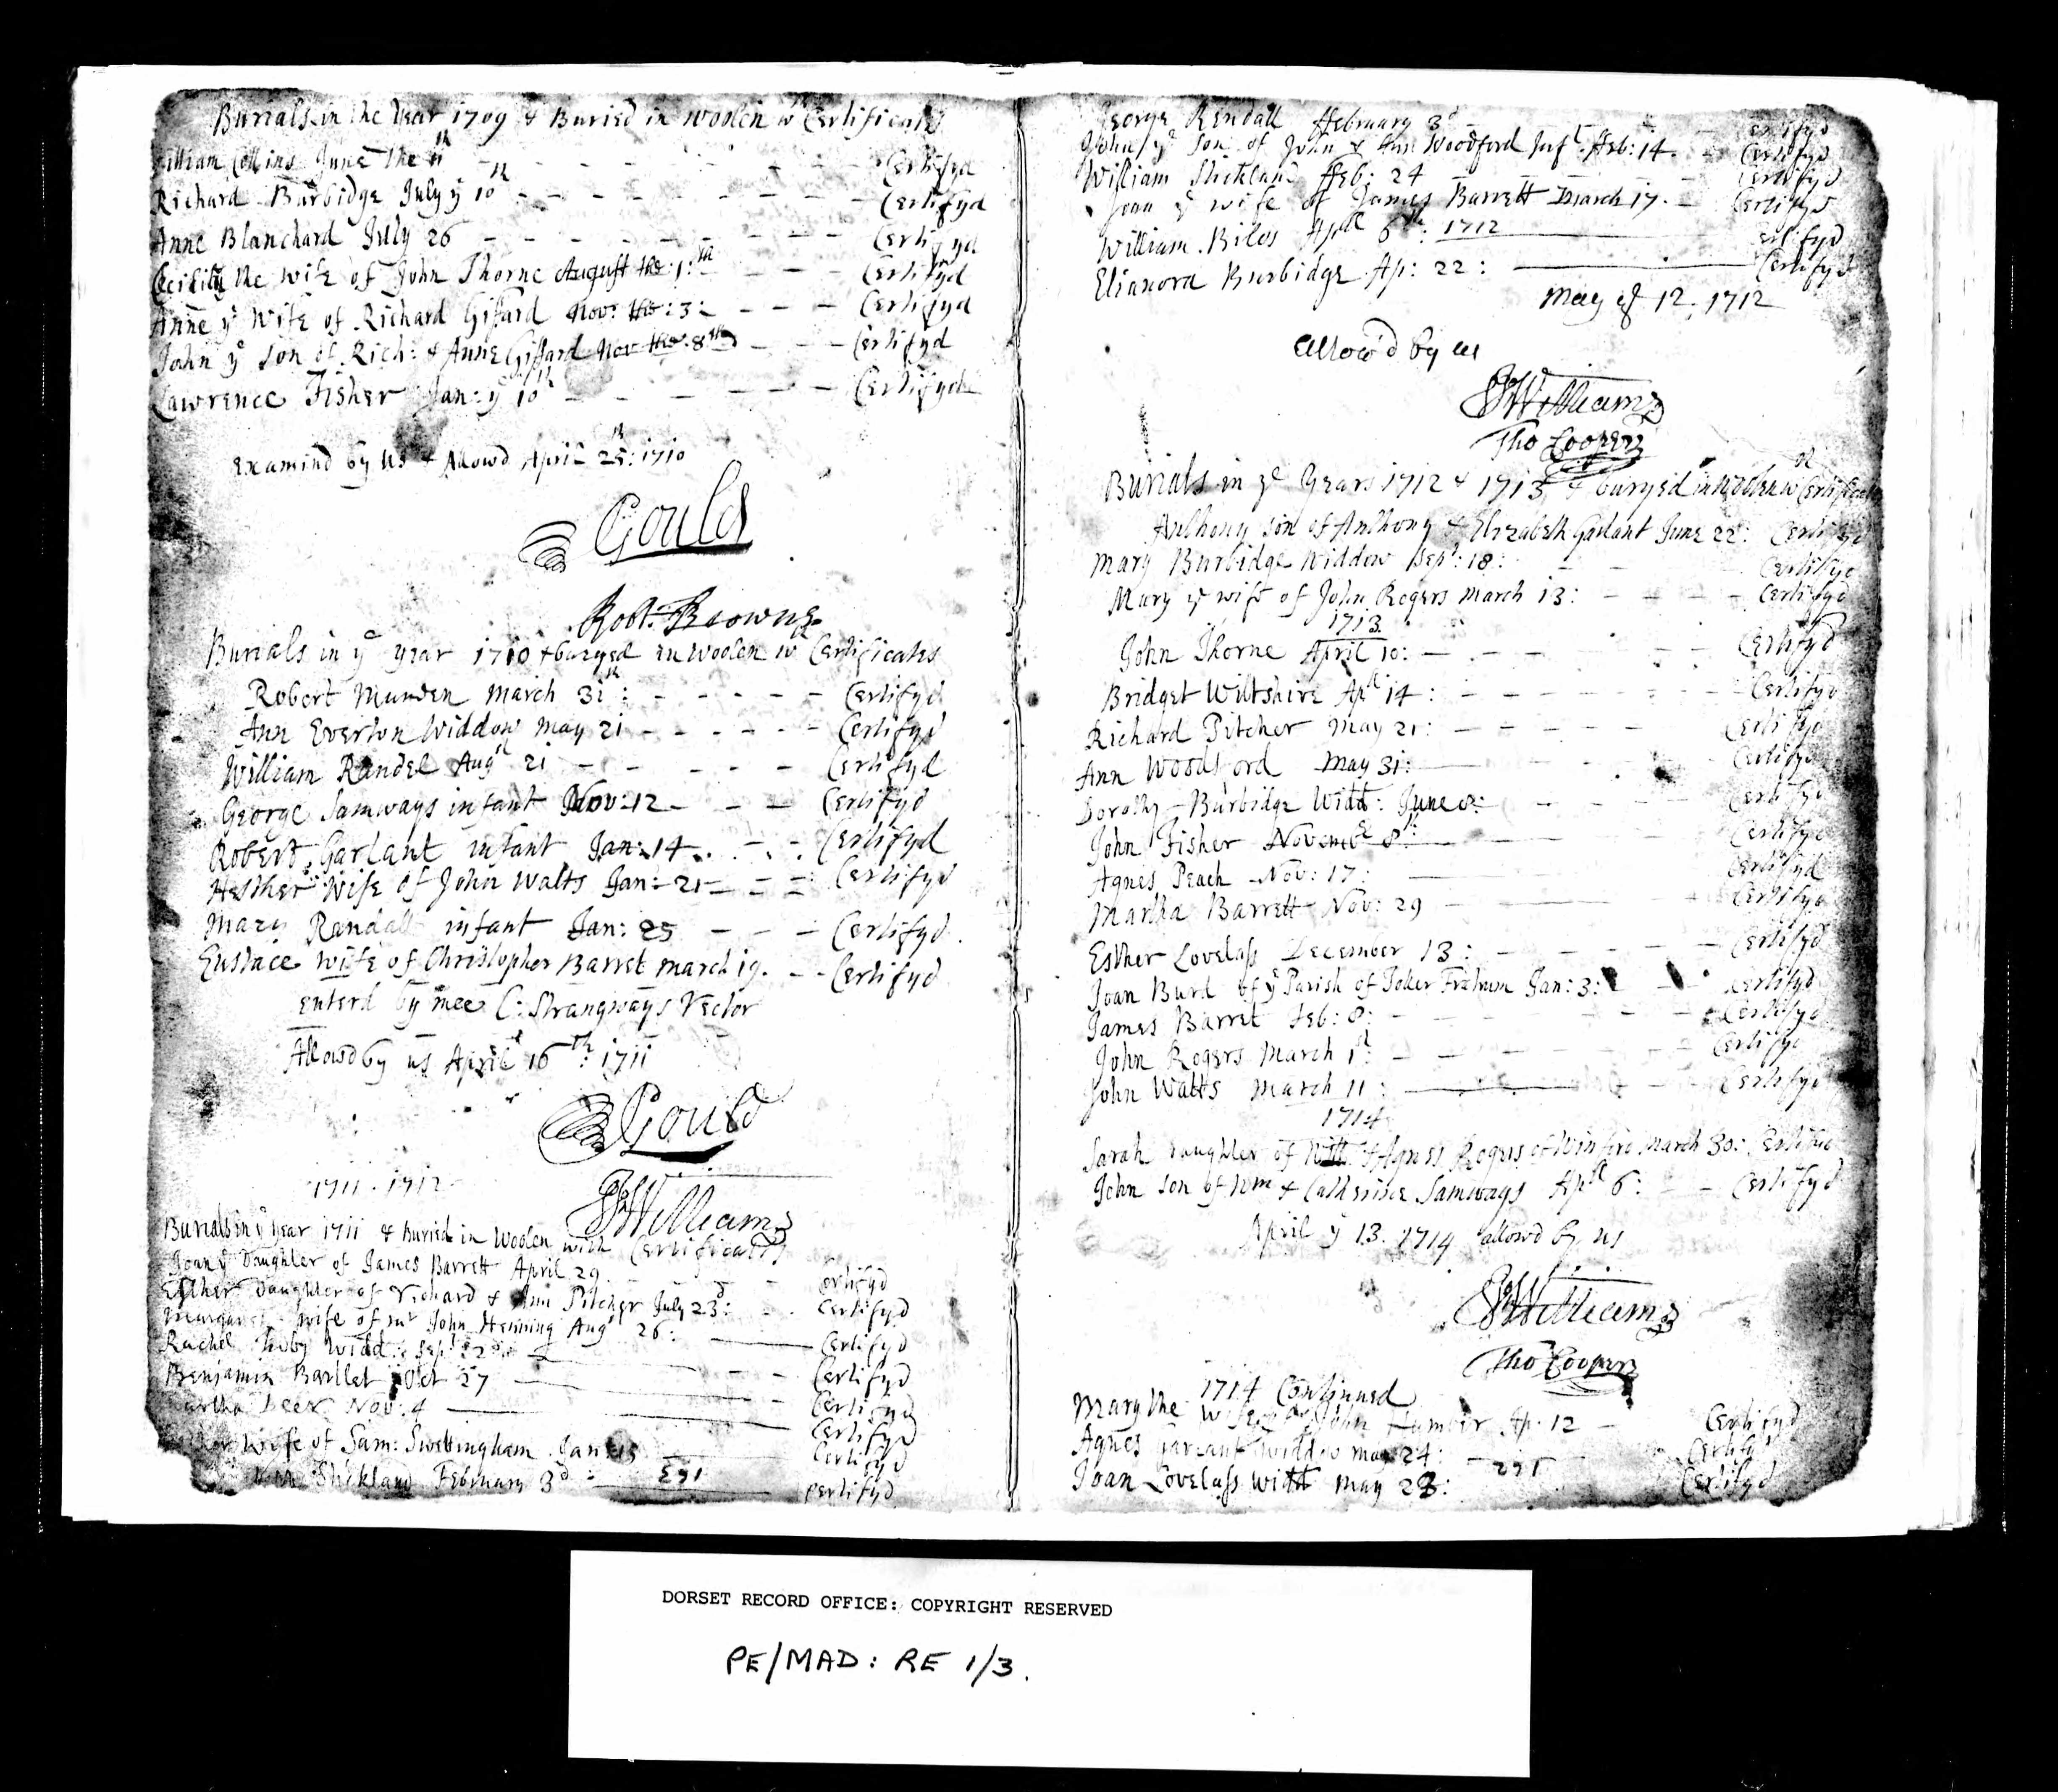 Burials in the Year 1709 & Buried in Woolen wth Certificats
William Collins June the 11th Certifyd
Richard Burbidge July ye 10th Certifyd
Anne Blanchard July 26 Certifyd
Cecility the wife of John Thorne August the: 1:th Certifyd
Anne ye Wife of Richard Gifard Nov: the: 3: Certifyd
John ye son of Rich: & Anne Giffard Nov the: 8th Certifyd
Lawrence Fisher Jan: ye 10th Certifyd
Examind by us & Allowd April 25th: 1710
Gould
Robt: Browne
Burials in ye year 1710 & buryed in Woolen wth Certificats
Robert Munden March 31th: Certifyd
Ann Everton Widdow May 21 Certifyd
William Randel Augst 21 Certifyd
George Samways infant Nov: 12 Certifyd
Robert Garlant infant Jan: 14 Certifyd
Hesther Wife of John Walts Jan: 21 Certifyd
Mary Randall infant Jan: 25 Certifyd
Eustace wife of Christopher Barret March 19. Certifyd
enterd by mee C: Strangways Rector
Allowd by us April 16th: 1711
Gould
1711 . 1712
Williams
Burials in ye year 1711 & Buried in Woolen with Certificats
Joan ye Daughter of James Barrett April 29 Certifyd
Esther Daughter of Richard & Ann Pitcher July 23d: Certifyd
Margaret wife of Mr John Henning Augst 26: Certifyd
Rachel Widd: Sept: 22d: Certifyd
Benjamin Bartlet Oct 27 Certifyd
Martha Deer Nov: 4 Certifyd
Wife of Sam: Swettingham Jan: 15 Certifyd
Stickland February 3d: 291 Certifyd
George Rendall ffebruary 3d Certifyd
John ye son of John & Ann Woodford Inft: ffeb: 14. Certifyd
William Stickland ffeb: 24 Certifyd
Joan ye wife of James Barrett March 17. Certifyd
William Biles Apll 6th: 1712 Certifyd
Elianora Burbidge Ap: 22: Certifyd
May ye 12, 1712
Allow'd by us
Williams
Tho Cooper
Burials in ye Years 1712 & 1713 & buryed in Woolen wth Certificats
Anthony son of Anthony & Elizabeth Garlant June 22: Certifyd
Mary Burbidge Widdow Sept: 18: Certifyd
Mary ye wife of John Rogers March 13: Certifyd
1713
John Thorne April 10: Certifyd
Bridget Wiltshire Apll 14: Certifyd
Richard Pitcher May 21: Certifyd
Ann Woodsford May 31: Certifyd
Dorothy Burbidge Widd: June 8: Certifyd
John Fisher Novembr 8th: Certifyd
Agnes Peach Nov: 17: Certifyd
Martha Barrett Nov: 29 Certifyd
Esther Lovelass December 13: Certifyd
Joan Burd of ye Parish of Toller Fratrum Jan: 3: Certifyd
James Barret Feb: 8: Certifyd
John Rogers March 1st: Certifyd
John Watts March 11: Certifyd
1714
Sarah daughter of Will & Agness Rogers of Winford March 30: Certifyd
John son of Wm & Catherine Samways Apll 6: Certifyd
April ye 13. 1714 allowd by us
Williams
Tho Cooper
1714 Continued
Mary the Wife of John Ap. 12 Certifyd
Agnes Garlant Widdow May 24: Certifyd
Joan Lovelass Widd May 28: 291 Certifyd
DORSET RECORD OFFICE: COPYRIGHT RESERVED
PE/MAD: RE 1/3.